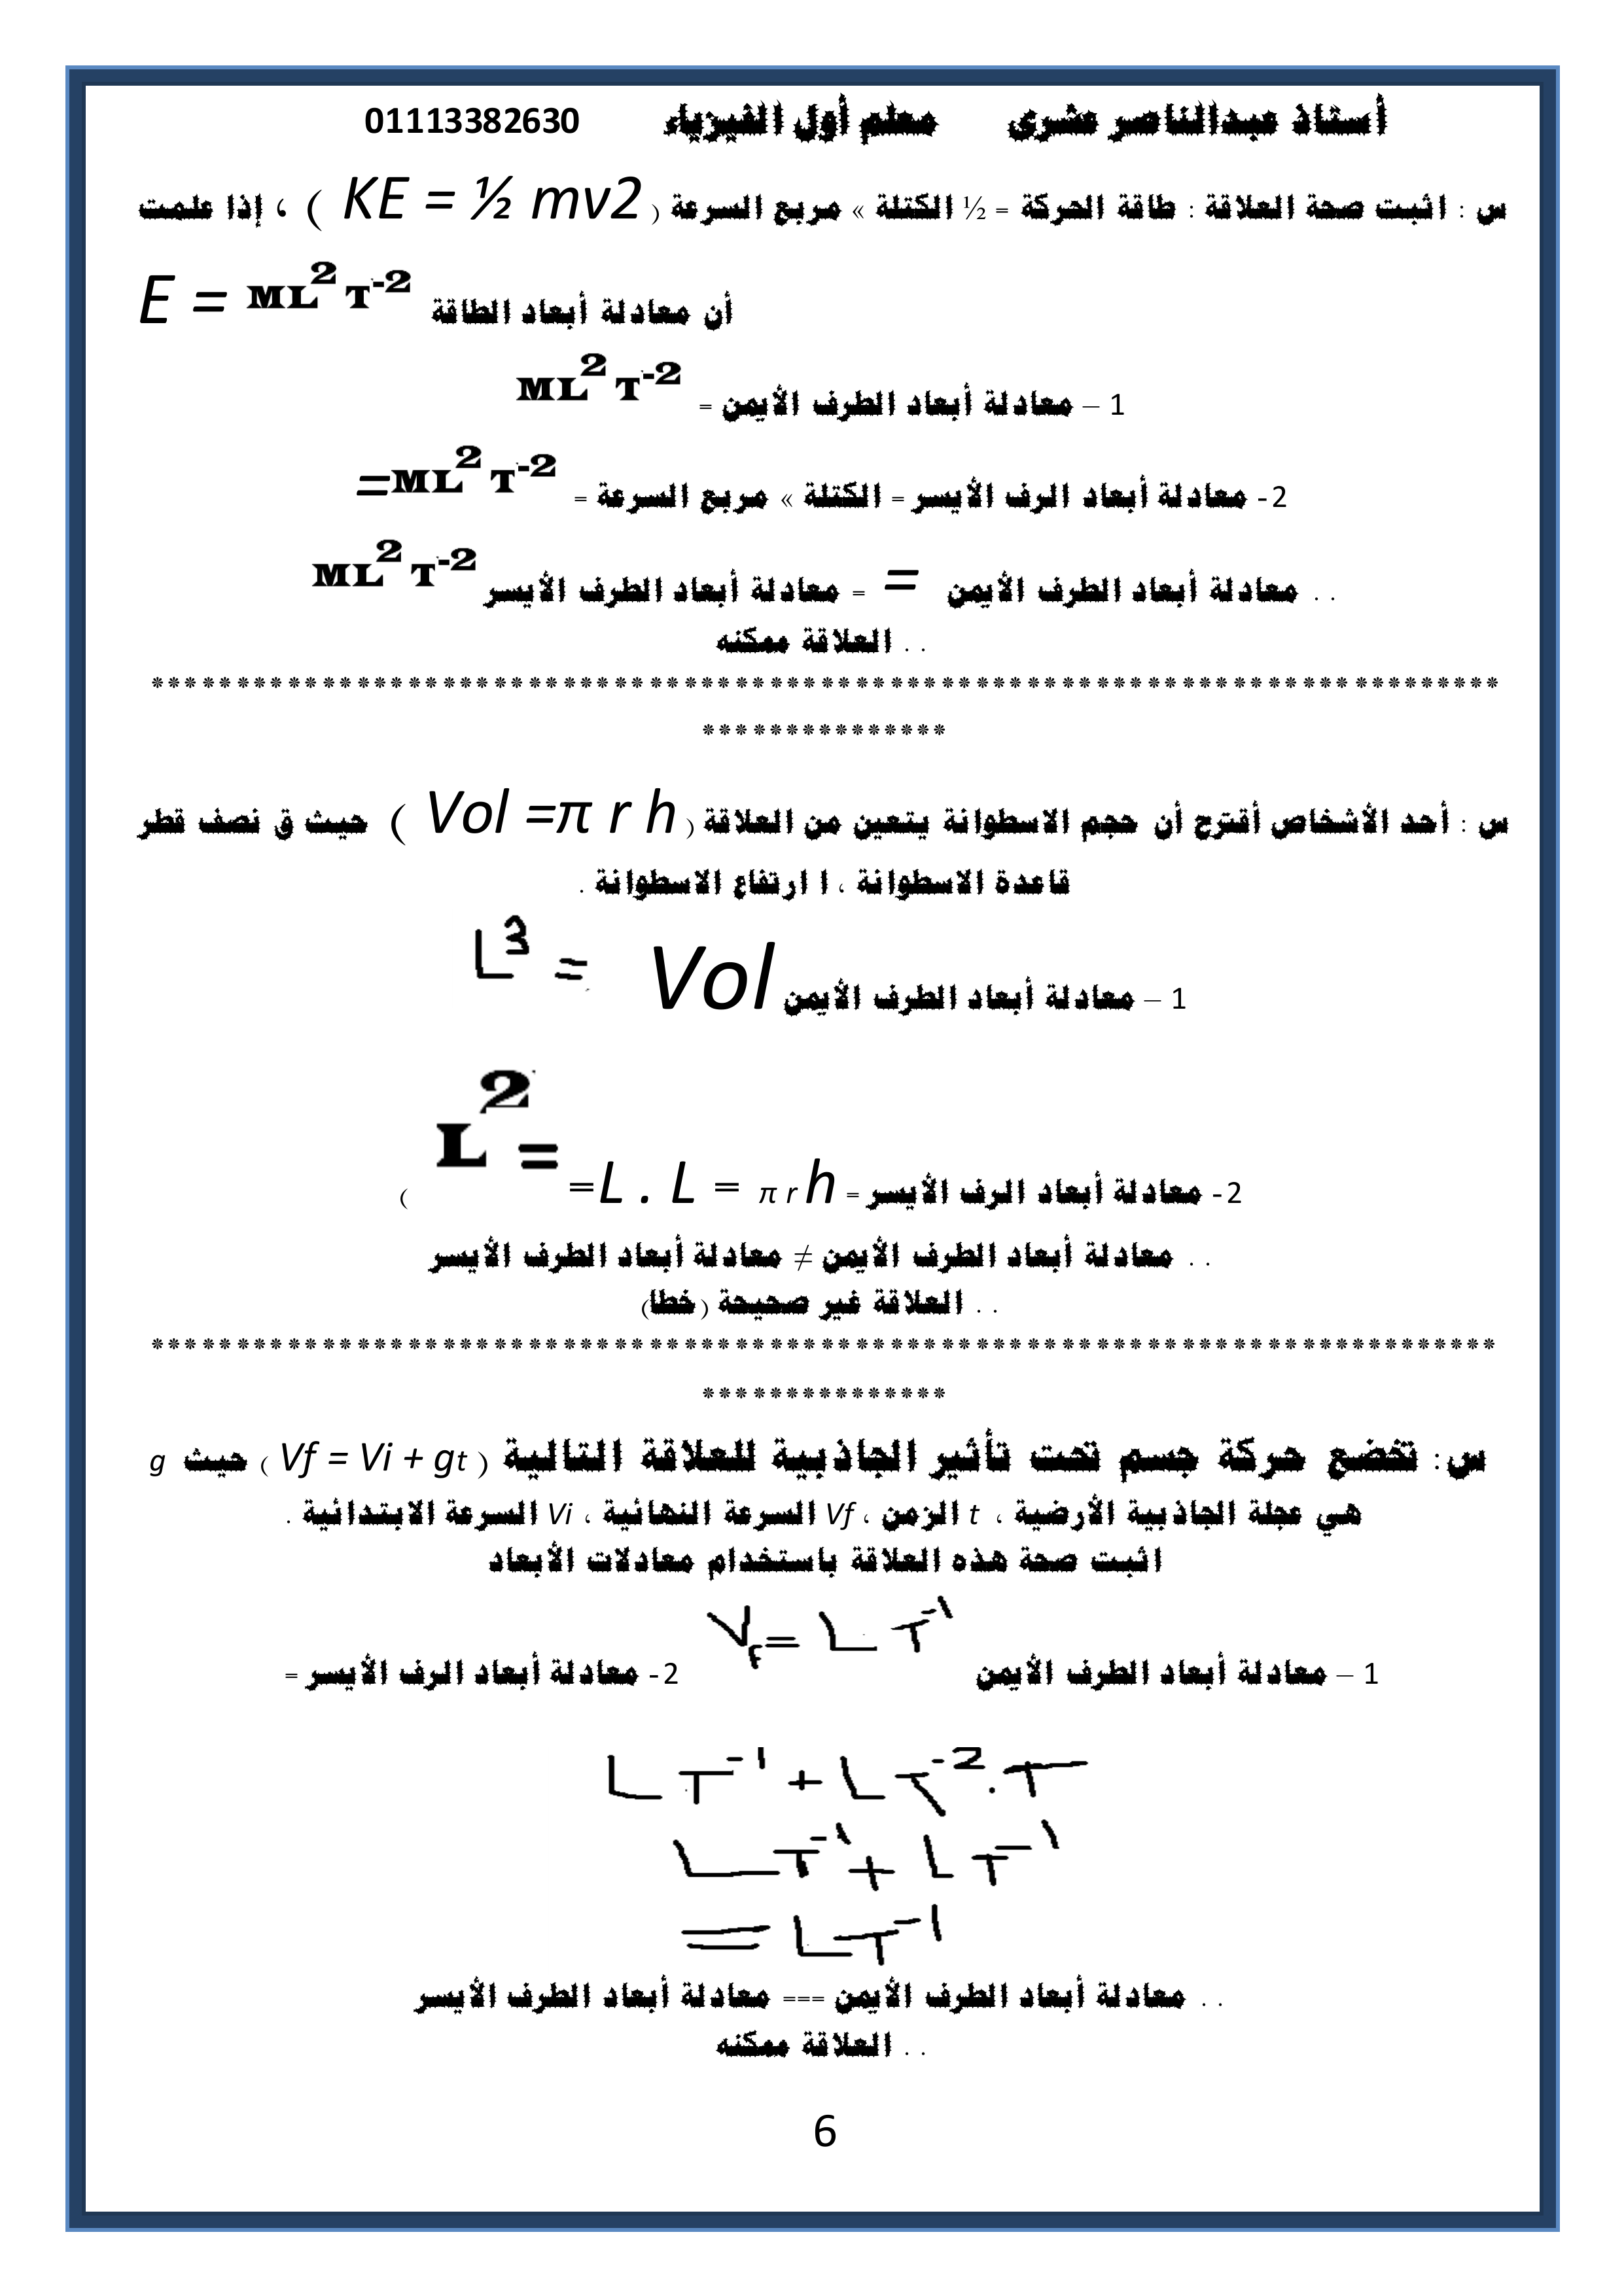 أستاذ عبدالناصر عشرى معلم أول الفيزياء 01113382630
س : اثبت صحة العلاقة : طاقة الحركة = ½ الكتلة × مربع السرعة ( KE = ½ mv2 ) ، إذا علمت
أن معادلة أبعاد الطاقة E = ML² T⁻²
1 – معادلة أبعاد الطرف الأيمن = ML² T⁻²
2- معادلة أبعاد الرف الأيسر = الكتلة × مربع السرعة = ML² T⁻²=
. . معادلة أبعاد الطرف الأيمن = = معادلة أبعاد الطرف الأيسر ML² T⁻²
. . العلاقة ممكنه
******************************************************************************
***************
س : أحد الأشخاص أقترح أن حجم الاسطوانة يتعين من العلاقة ( Vol =π r h ) حيث ق نصف قطر
قاعدة الاسطوانة ، ا ارتفاع الاسطوانة .
1 – معادلة أبعاد الطرف الأيمن Vol = L³
2- معادلة أبعاد الرف الأيسر = π r h = L . L = = L² )
. . معادلة أبعاد الطرف الأيمن ≠ معادلة أبعاد الطرف الأيسر
. . العلاقة غير صحيحة (خطا)
******************************************************************************
***************
س : تخضع حركة جسم تحت تأثير الجاذبية للعلاقة التالية ( Vf = Vi + gt ) حيث g
هي عجلة الجاذبية الأرضية ، t الزمن ، Vf السرعة النهائية ، Vi السرعة الابتدائية .
اثبت صحة هذه العلاقة باستخدام معادلات الأبعاد
1 – معادلة أبعاد الطرف الأيمن Vf = L T⁻¹ 2- معادلة أبعاد الرف الأيسر =
L T⁻¹ + L T⁻² . T
L T⁻¹ + L T⁻¹
= L T⁻¹
. . معادلة أبعاد الطرف الأيمن === معادلة أبعاد الطرف الأيسر
. . العلاقة ممكنه
6